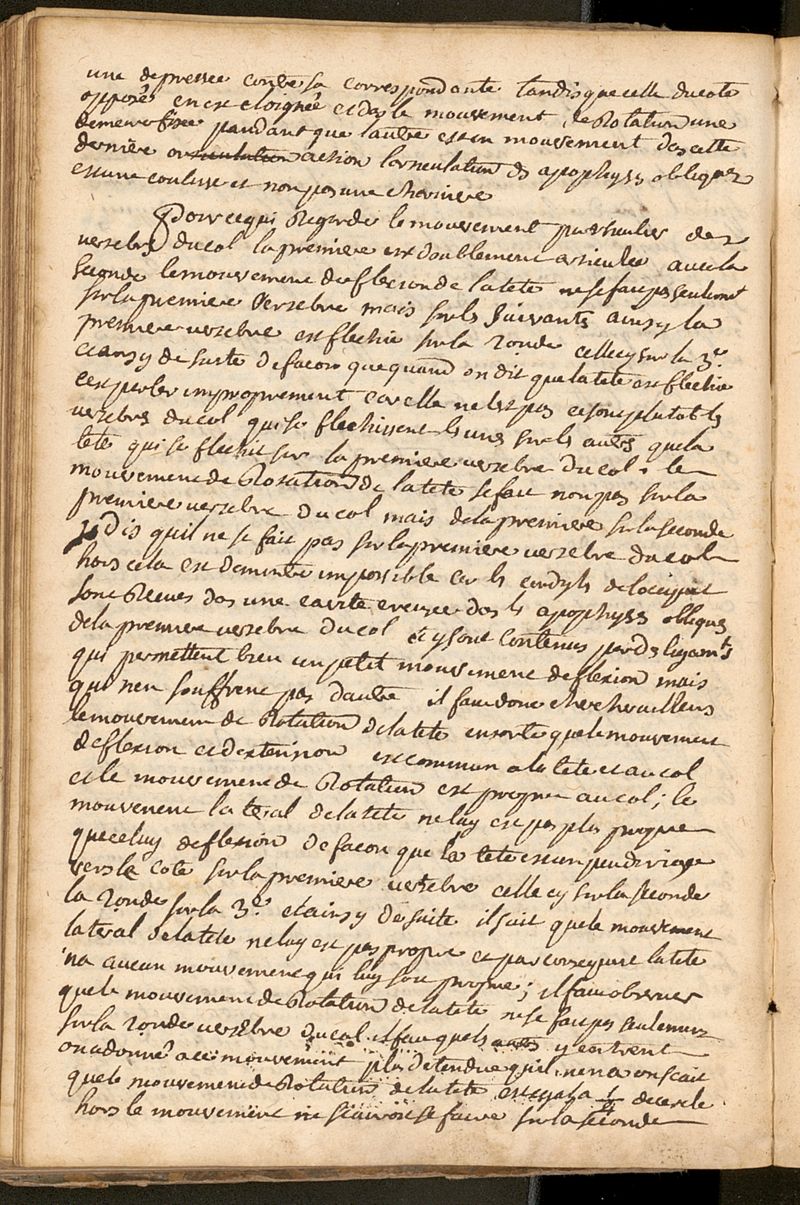 une depressee contre sa correspondante tandis que celle du cote
opposé en est eloignée et ds le mouvement de Rotation une
demeure fixee pandant que lautre est en mouvement ds cette
derniere action larticulation ds apophyses obliques
est une coulisse et non pas une charniere
Pour ce qui Regarde le mouvement particulier des
vertebres du col la premiere est doublement articulée avec la
seconde le mouvement de flexion de la tete ne se fait pas seulement
sur la premiere vertebre mais sur ls suivants ainsy la
premiere vertebre est flechie sur la 2onde celle cy sur la 3.e
et ainsy de suite de facon que quand on dit que la tete est flechie
cest parler improprement car elle ne lest pas et sont plutot ls
vertebres du col qui se flechissent ls unes sur ls autrs que la
tete qui se flechit sur la premiere vertebre du col ; le
mouvement de Rotation de la tete se fait non pas sur la
premiere vertebre du col mais de la premiere sur la seconde
je Dis quil ne se fait pas sur la premiere vertebre du col
hors cela est demontré impossible car ls condyls de locciput
sont Recues ds une cavité creusee ds ls apophyses obliques
de la premiere vertebre du col et y sont contenus par ds ligamts
qui permettent bien un petit mouvement de flexion mais
qui nen souffrent pas dautre il faut donc chercher ailleurs
le mouvement de Rotation de la tete en sorte que le mouvement
de flexion et dextension est commun a la tete et au col
et le mouvement de Rotation est propre au col ; le
mouvement lateral de la tete ne luy est pas plus propre
que celuy de flexion de facon que la tete est un peu
vers le coté sur la premiere vertebre celle cy sur la seconde
la 2onde sur la 3.e et ainsy de suite il suit que le mouvement
lateral de la tete ne luy est pas propre et par consequent la tete
na aucun mouvement qui luy soit propre ; il faut observer
que le mouvement de Rotation de la tete ne se fait pas seulement
sur la 2onde vertebre du col il faut que ls autrs y entrent
on a donné a ce mouvement plus detendue quil nen a on scait
que le mouvement de Rotation de la tete est egal a 1/4 de cercle
hors le mouvement ne scauroit se faire sur la seconde